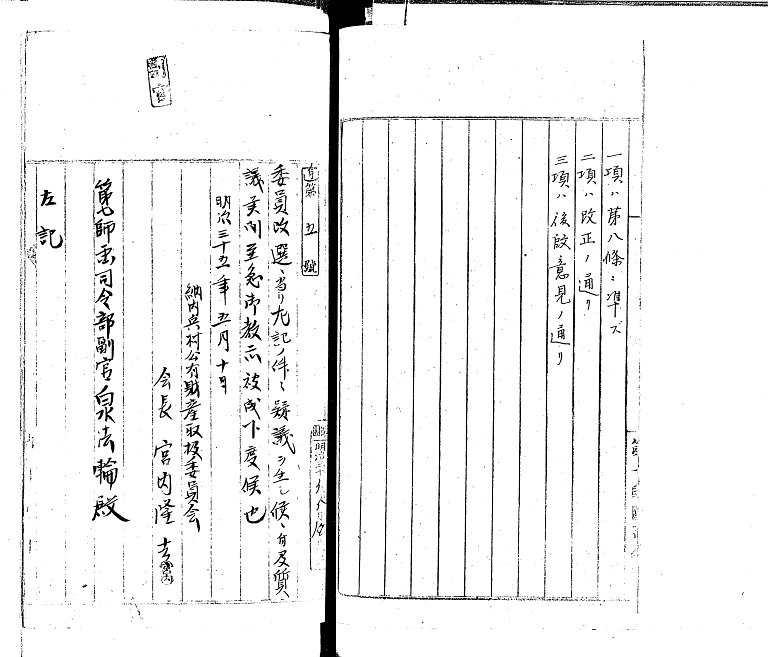 一項ハ第八條ニ準ズ
二項ハ改正ノ通リ
三項ハ後段意見ノ通リ
第五號
委員改選ニ当リ左記ノ件ニ疑議ヲ生シ候ニ付及質
議候間至急御教示被成下度候也
明治三十五年五月十日
納内兵村公有財産取扱委員会
会長 宮内隆吉
第七師団司令部副官白泉法輪殿
左記
副官